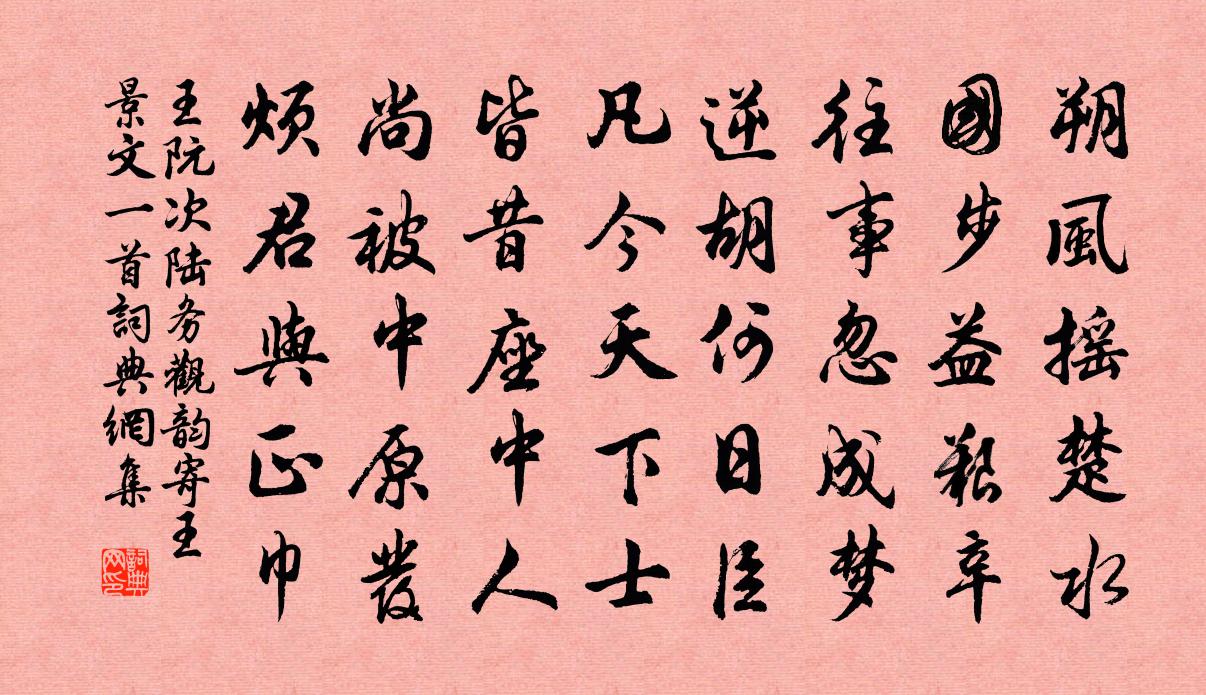 朔風揺楚水
國步益艱辛
往事忽成梦
逆胡何日臣
凡今天下士
皆昔座中人
尚被中原髮
煩君與正巾
王阮次陆务觀韵寄王
景文一首詞典網集
詞典
网印